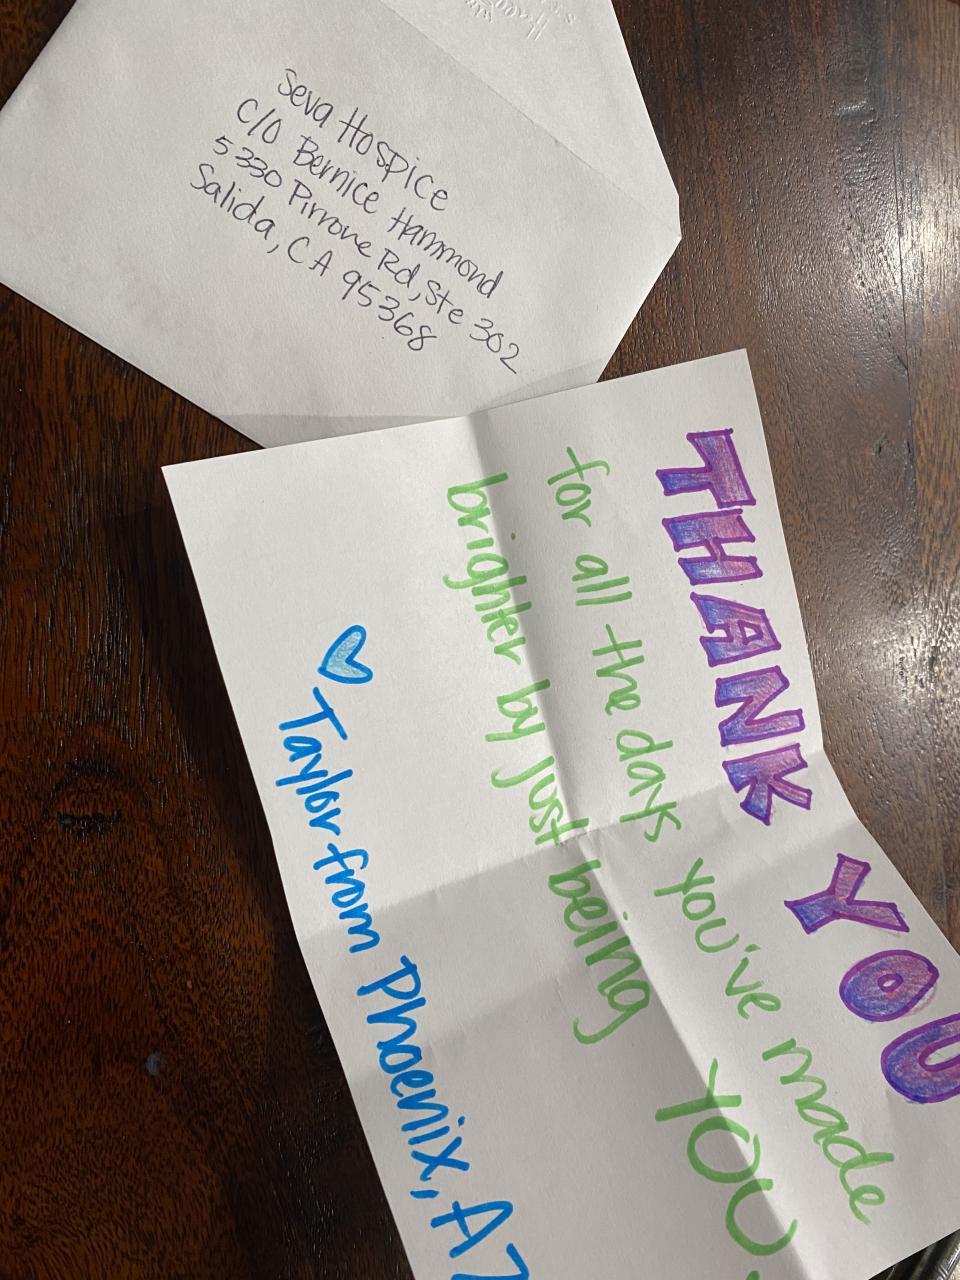 Seva Hospice
C/O Bernice Hammond
5330 Pirrone Rd, Ste 302
Salida, CA 95368
THANK YOU
for all the days you've made
brighter by just being YOU.
Taylor from Phoenix, AZ